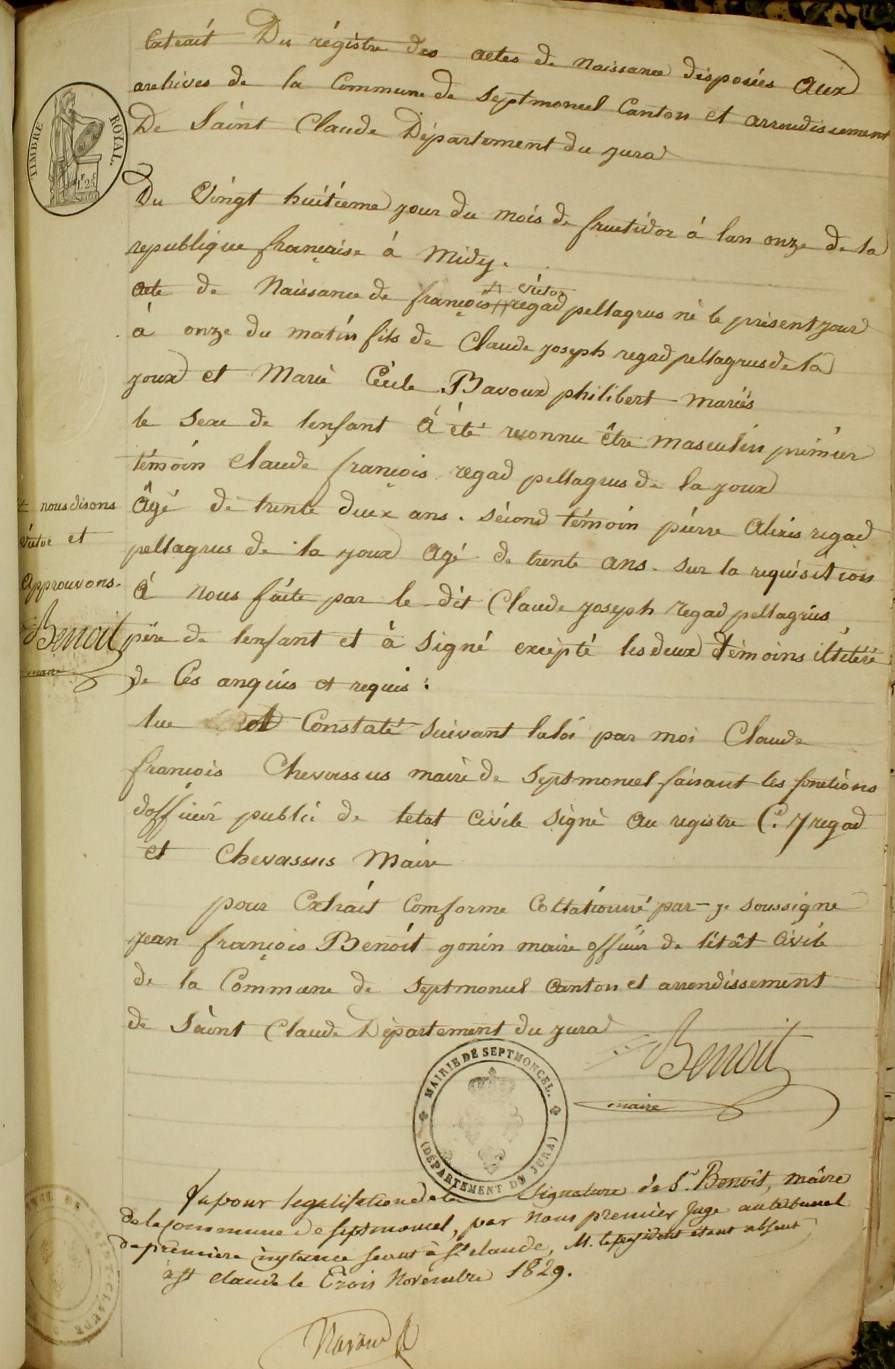 Extrait Du régistre des actes de Naissance disposées aux
archives de la Commune de Septmoncel Canton et arrondissement
De Saint Claude Département du jura
TIMBRE ROYAL.
Du Vingt huitieme jour du mois de fructidor à lan onze de la
republique française à Midy.
acte de Naissance de françois victor regad pellagrus né le présent jour
à onze du matin fils de Claude joseph regad pellagrus de la
joux et Marie Cécile Bavoux philibert mariés
le sexe de lenfant à été reconnu être masculin prémier
témoin Claude françois regad pellagrus de la joux
Âgé de trente deux ans. sécond témoin piérre aléxis regad
pellagrus de la joux agé de trente ans. sur la requisition
à nous faite par le dit Claude joseph regad pellagrus
père de lenfant et à signé excépté les deux témoins illitéré
de Ces enquis et requis :
nous disons
victor et
approuvons.
Benoit
maire
lue et Constaté suivant laloi par moi Claude
françois Chevassus maire de Septmoncel faisant les fonctions
dofficier public de letat civile signé au registre C. J regad
et Chevassus Maire
pour Extrait Comforme Collationné par je soussigne
jean françois Benoit gonin maire officier de létât Civile
de la Commune de Septmoncel Canton et arrondissement
de Saint Claude Département du jura
Benoit
maire
MAIRIE DE SEPTMONCEL.
(DÉPARTEMENT DU JURA)
Vu pour legalisation de la signature de Sr. Benoit, maire
de la commune de Septmoncel, par nous premier juge au tribunal
de première instance seant à St. claude, M. le président étant absent
à St claude le trois Novembre 1829.